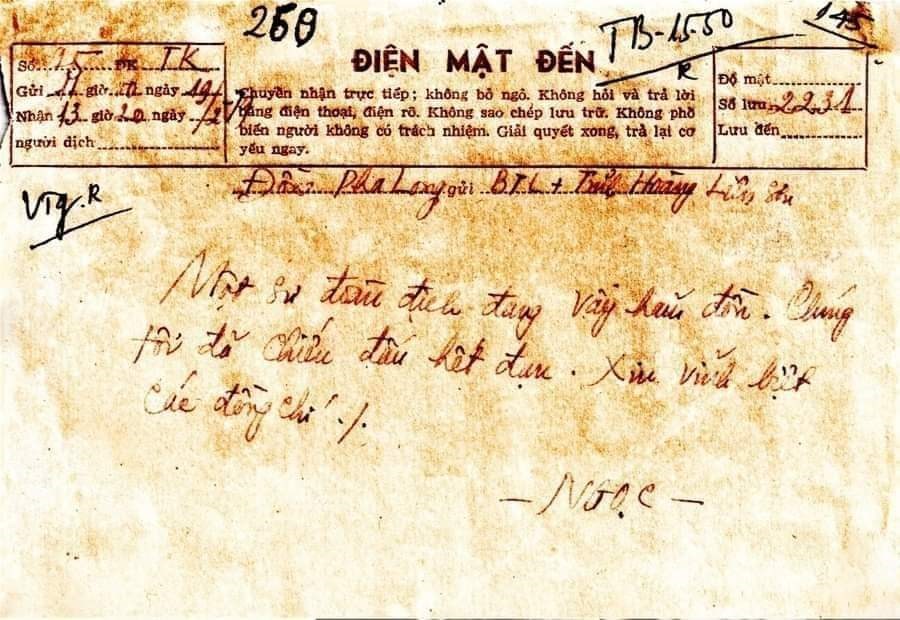 260
TB-15.50
R
145
ĐIỆN MẬT ĐẾN
Số 15 ĐK TK
Gửi 11 giờ ngày 19/
Nhận 13 giờ 20 ngày
người dịch
Chuyển nhận trực tiếp; không bỏ ngỏ. Không hỏi và trả lời
bằng điện thoại, điện rõ. Không sao chép lưu trữ. Không phổ
biến người không có trách nhiệm. Giải quyết xong, trả lại cơ
yếu ngay.
Độ mật
Số lưu 2231
Lưu đến
Đồn: Pha Long gửi BTL + Tỉnh Hoàng Liên Sơn
Vtg.R
Một sư đoàn địch đang vây hãm đồn. Chúng
tôi đã chiến đấu hết đạn. Xin vĩnh biệt
các đồng chí ./.
- NGỌC -